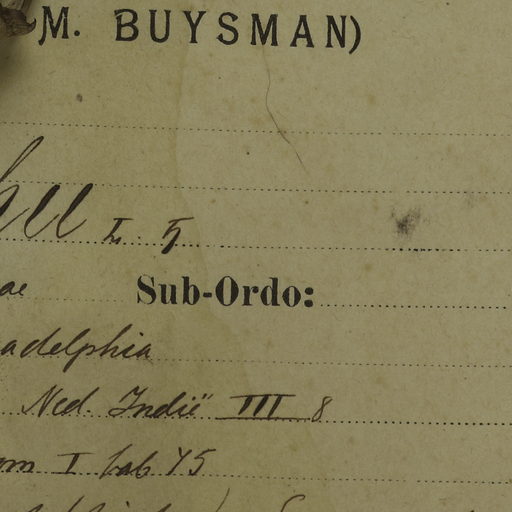 M. BUYSMAN)
I. 5
ae Sub-Ordo:
adelphia
Ned. Indië III 8
om I tab 75